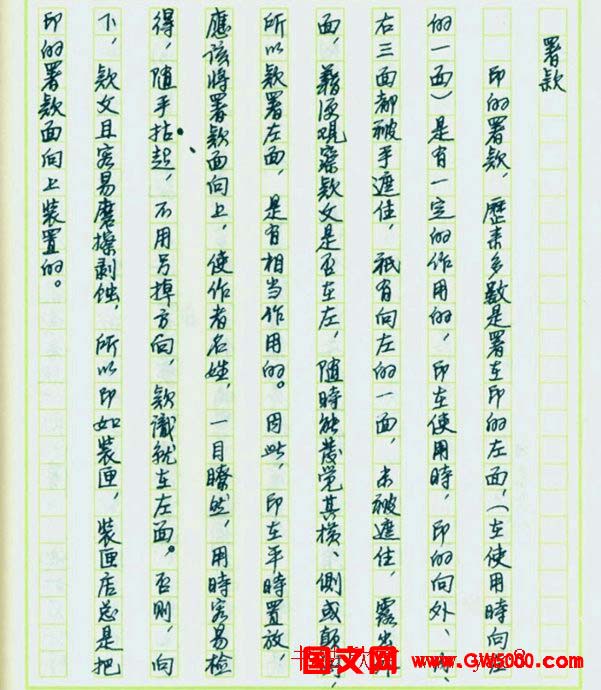 署款
印的署款，歷来多数是署在印的左面，（在使用時向左
的一面）是有一定的作用的，印在使用時，印的向外、
右三面都被手遮住，祇有向左的一面，未被遮住，露出
面，藉便观察款文是否在左，随時能發覚其横、側或顛
所以款署左面，是有相当作用的。因此，印在平時置放，
應該将署款面向上，使作者名姓，一目瞭然，用時容易检
得，随手拈起，不用另掉方向，款識就在左面。否則，向
下，款文且容易磨擦剥蝕，所以印如装匣，装匣店总是把
印的署款面向上装置的。
国文网 www.GW5000.com